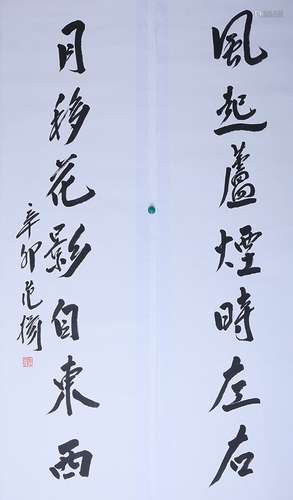 風起蘆煙時左右
月移花影自東西
辛卯范